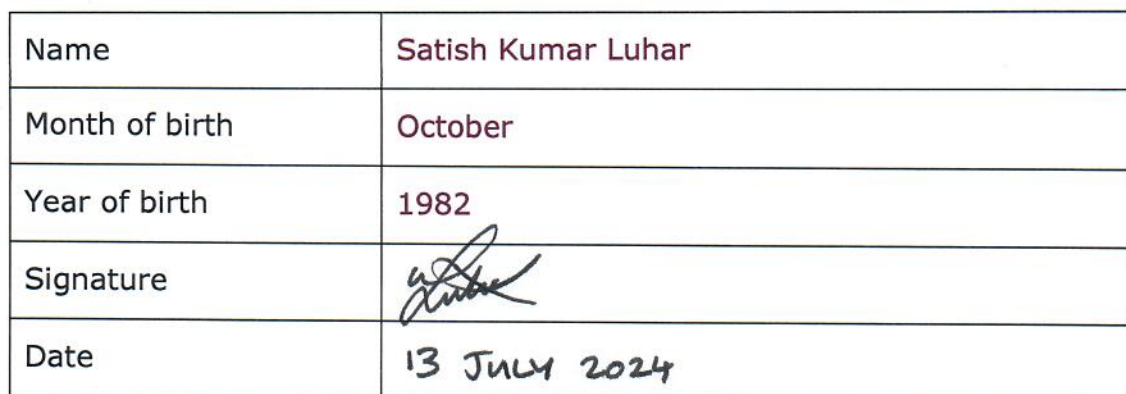 Name Satish Kumar Luhar
Month of birth October
Year of birth 1982
Signature
Date 13 JULY 2024